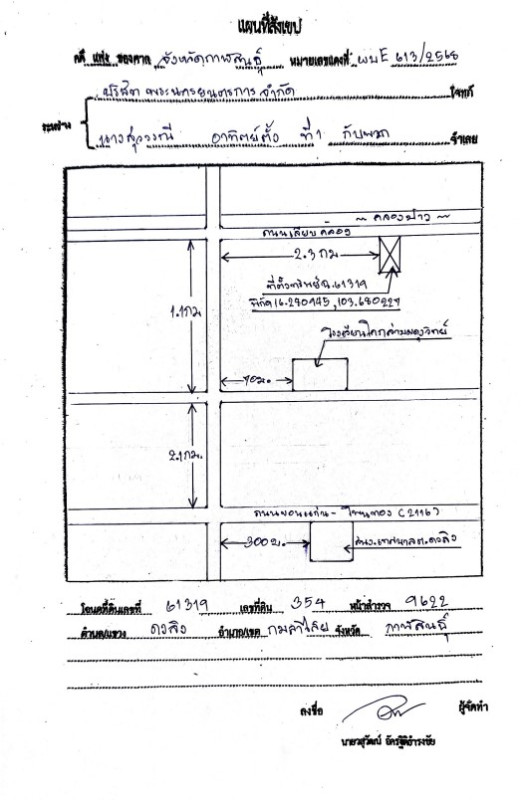 แผนที่สังเขป
คดี แพ่ง ของศาล จังหวัดกาฬสินธุ์ หมายเลขแดงที่ ผบE 613/2568
ระหว่าง
บริษัท พระนครยนตรการ จำกัด โจทก์
นางสุวรรณี อาทิตย์ตั้ง ที่1 กับพวก จำเลย
~ คลองน้ำ ~
ถนนเลียบคลอง
2.3 กม
ที่ตั้งทรัพย์ฉ.61319
พิกัด 16.290945, 103.680227
1.1กม
โรงเรียน
70ม.
2.1กม.
(2116)
300 ม.
สำนง.เทศบาลต.ดงลิง
โฉนดที่ดินเลขที่ 61319 เลขที่ดิน 354 หน้าสำรวจ 9622
ตำบล/แขวง ดงลิง อำเภอ/เขต กมลาไสย จังหวัด กาฬสินธุ์
ลงชื่อ ผู้จัดทำ
นายวสุวัฒน์